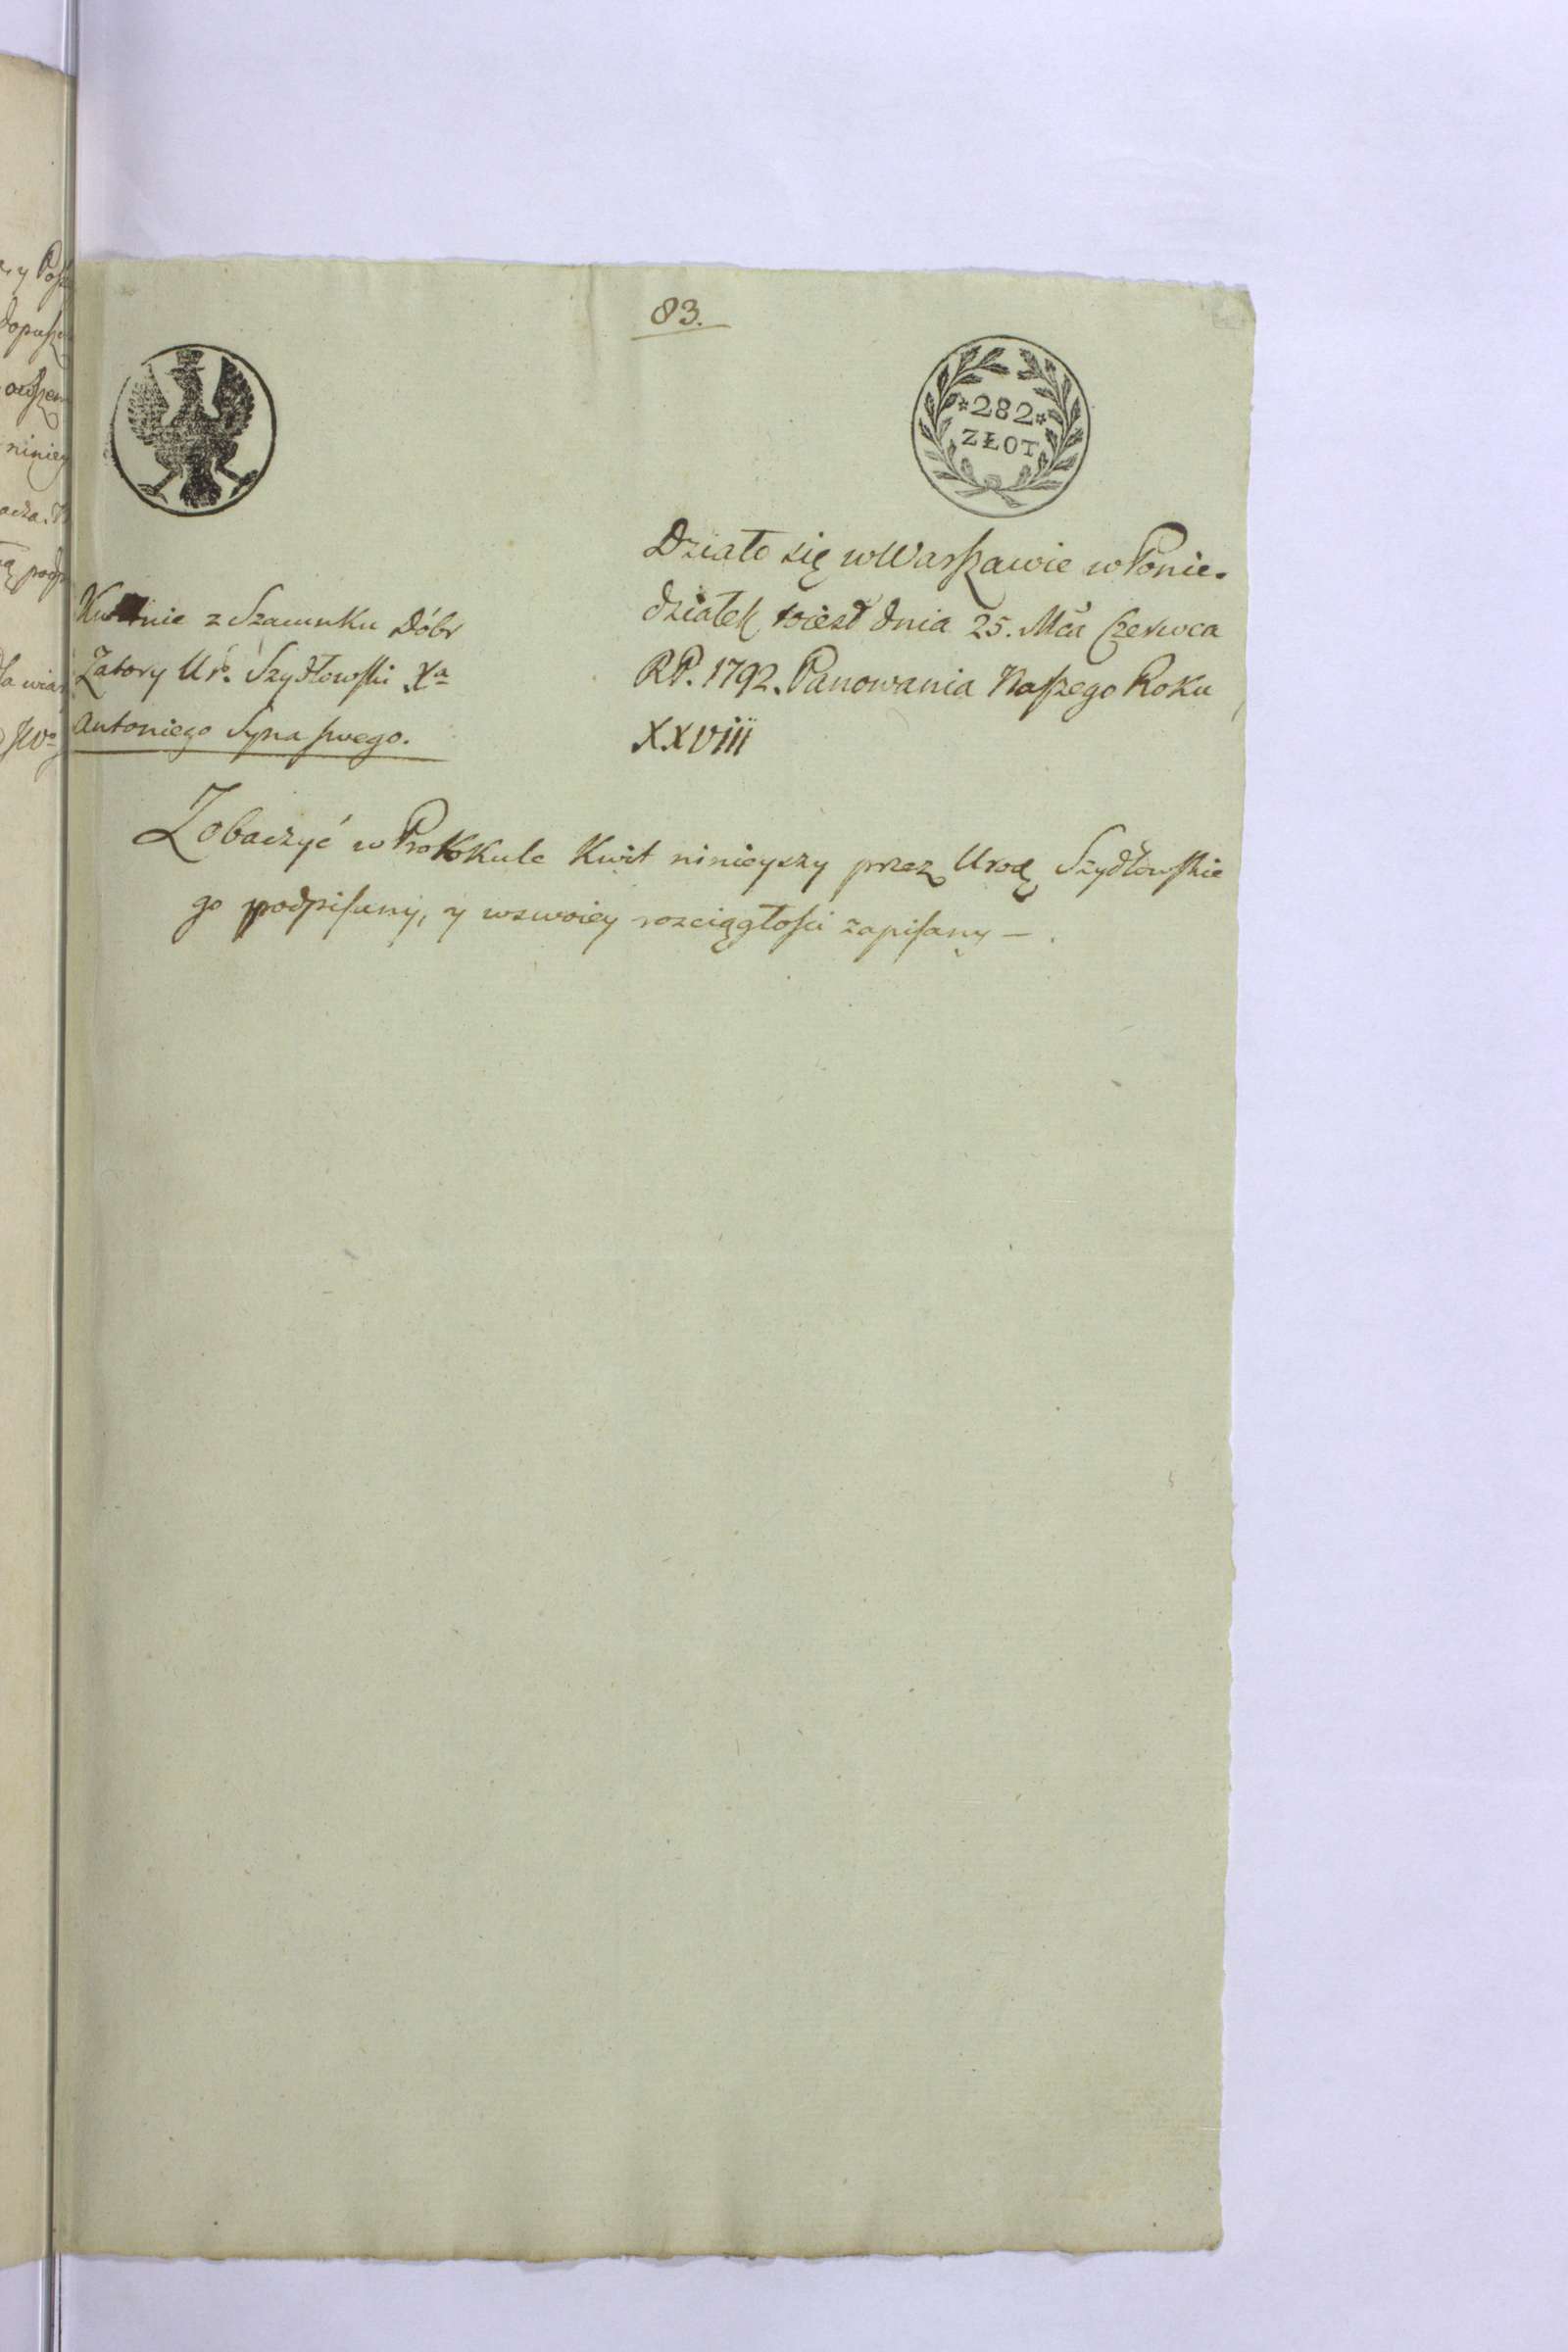 83.
*282*
ZŁOT
Działo się w Warszawie w Ponie-
działek to iest dnia 25. Mca Czerwca
RP. 1792. Panowania Naszego Roku
XXVIII
z Szacunku Dóbr
Zatory Ur. Szydłowski Xa
Antoniego Syna swego.
Zobaczyć w Protokule Kwit ninieyszy przez Urodz Szydłowskie
go podpisany, y w swoiey rozciągłości zapisany —.